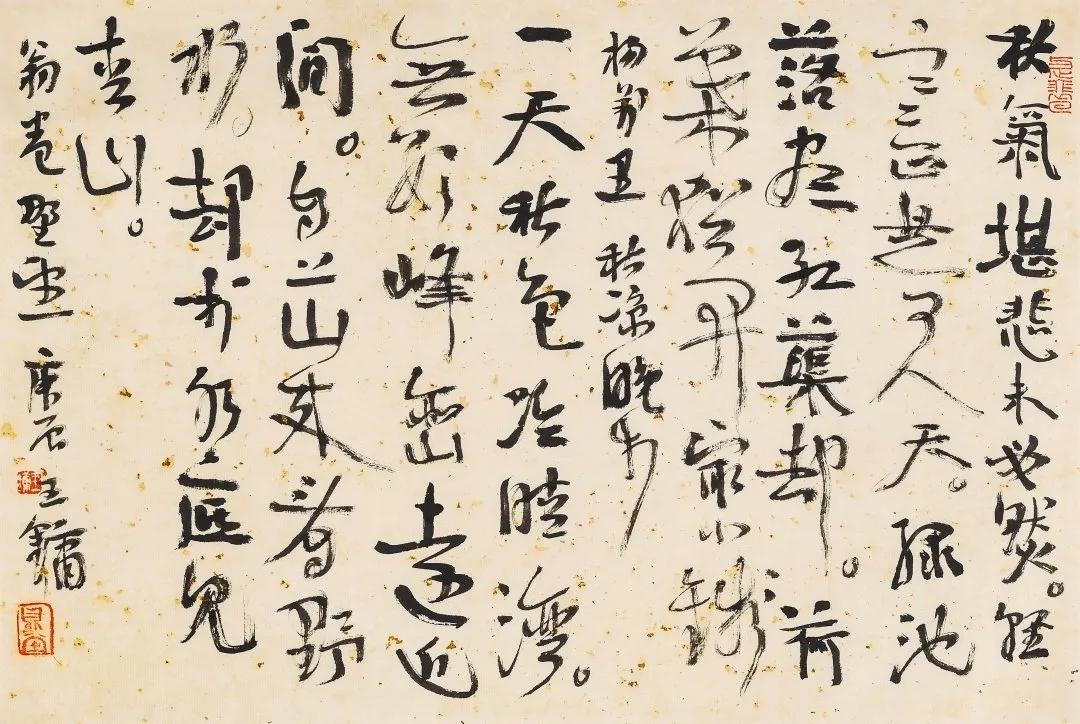 秋氣堪悲未必然。輕
寒正是可人天。緑池
落盡紅蕖却。荷
葉猶開最小錢
楊萬里 秋涼晚步
一天秋色冷晴灣。
無數峰巒遠近
間。自上山來看野
水。却於水底見
青山。
翁卷野望 庚辰王鏞